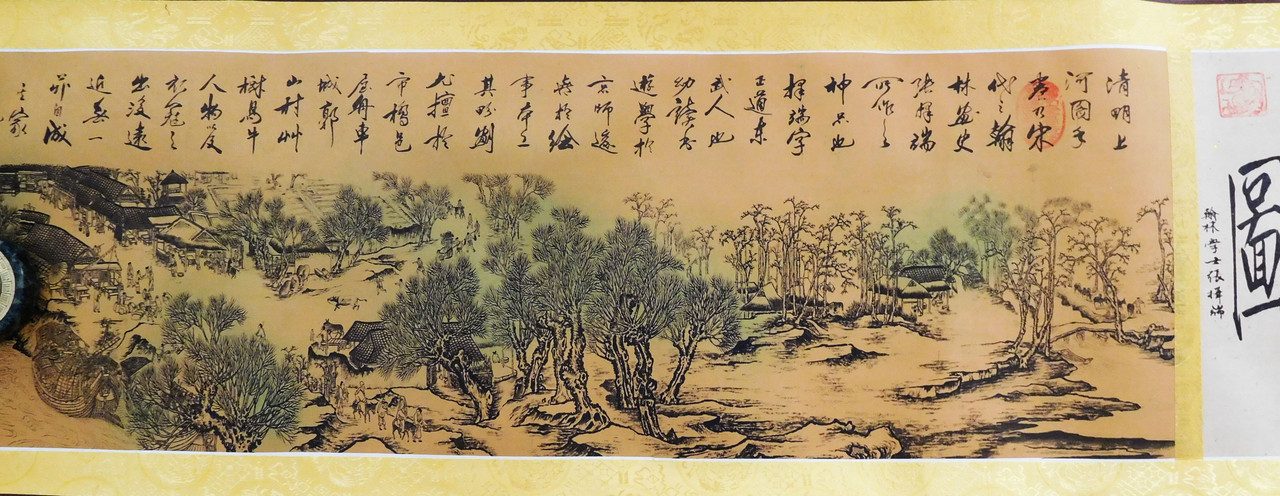 圖
翰林学士張擇端
清明上
河圖手
卷乃宋
代之翰
林畫史
張擇端
所作之
神品也
擇端字
正道東
武人也
幼讀書
遊學於
京師後
喜於繪
事本工
其界劃
尤擅於
市橋邑
屋舟車
城郭
山村艸
樹馬牛
人物及
衣冠之
出没遠
近無一
自成
家